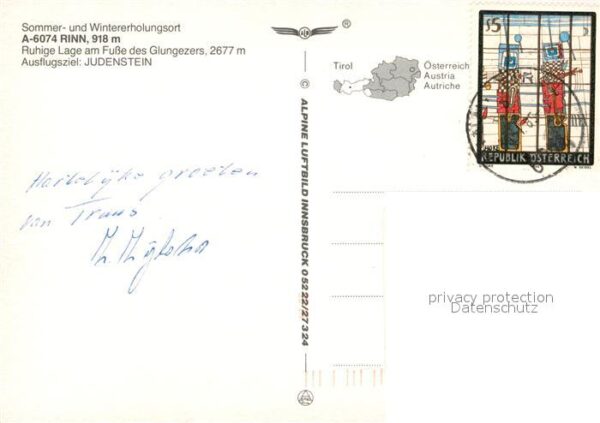 Sommer- und Wintererholungsort
A-6074 RINN, 918 m
Ruhige Lage am Fuße des Glungezers, 2677 m
Ausflugsziel: JUDENSTEIN
®
Tirol
Österreich
Austria
Autriche
S5
REPUBLIK ÖSTERREICH
© ALPINE LUFTBILD INNSBRUCK 0 52 22/27 3 24
Hartelijke groeten
van Truus
privacy protection
Datenschutz